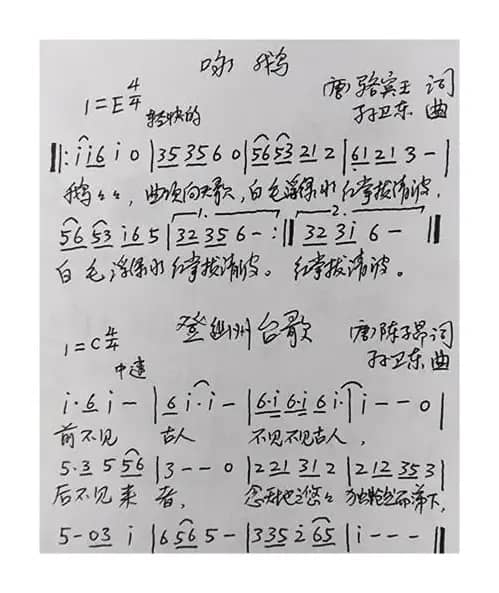 咏鹅
1=E 4/4 轻快的 (唐)骆宾王 词
孙卫东 曲
‖: i i 6 i 0 | 35 35 6 0 | 56 53 21 2 | 61 21 3 - |
鹅々々, 曲项向天歌, 白毛浮绿水 红掌拨清波,
56 53 i6 5 | 1. 32 35 6 - :‖ 2. 32 3i 6 - ‖
白毛浮绿水 红掌拨清波。 红掌拨清波。
登幽州台歌
1=C 4/4 中速 (唐)陈子昂 词
孙卫东 曲
i·6 i - | 6 i·i - | 6·i 6·i 6 i· | i - - 0 |
前不见 古人 不见不见古人,
5·3 5 56 | 3 - - 0 | 2 21 31 2 | 2 12 35 3 |
后不见来者, 念天地之悠々 独怆然而涕下,
5 - 03 i | 6 56 5 - | 335 2 65 | i - - - ‖